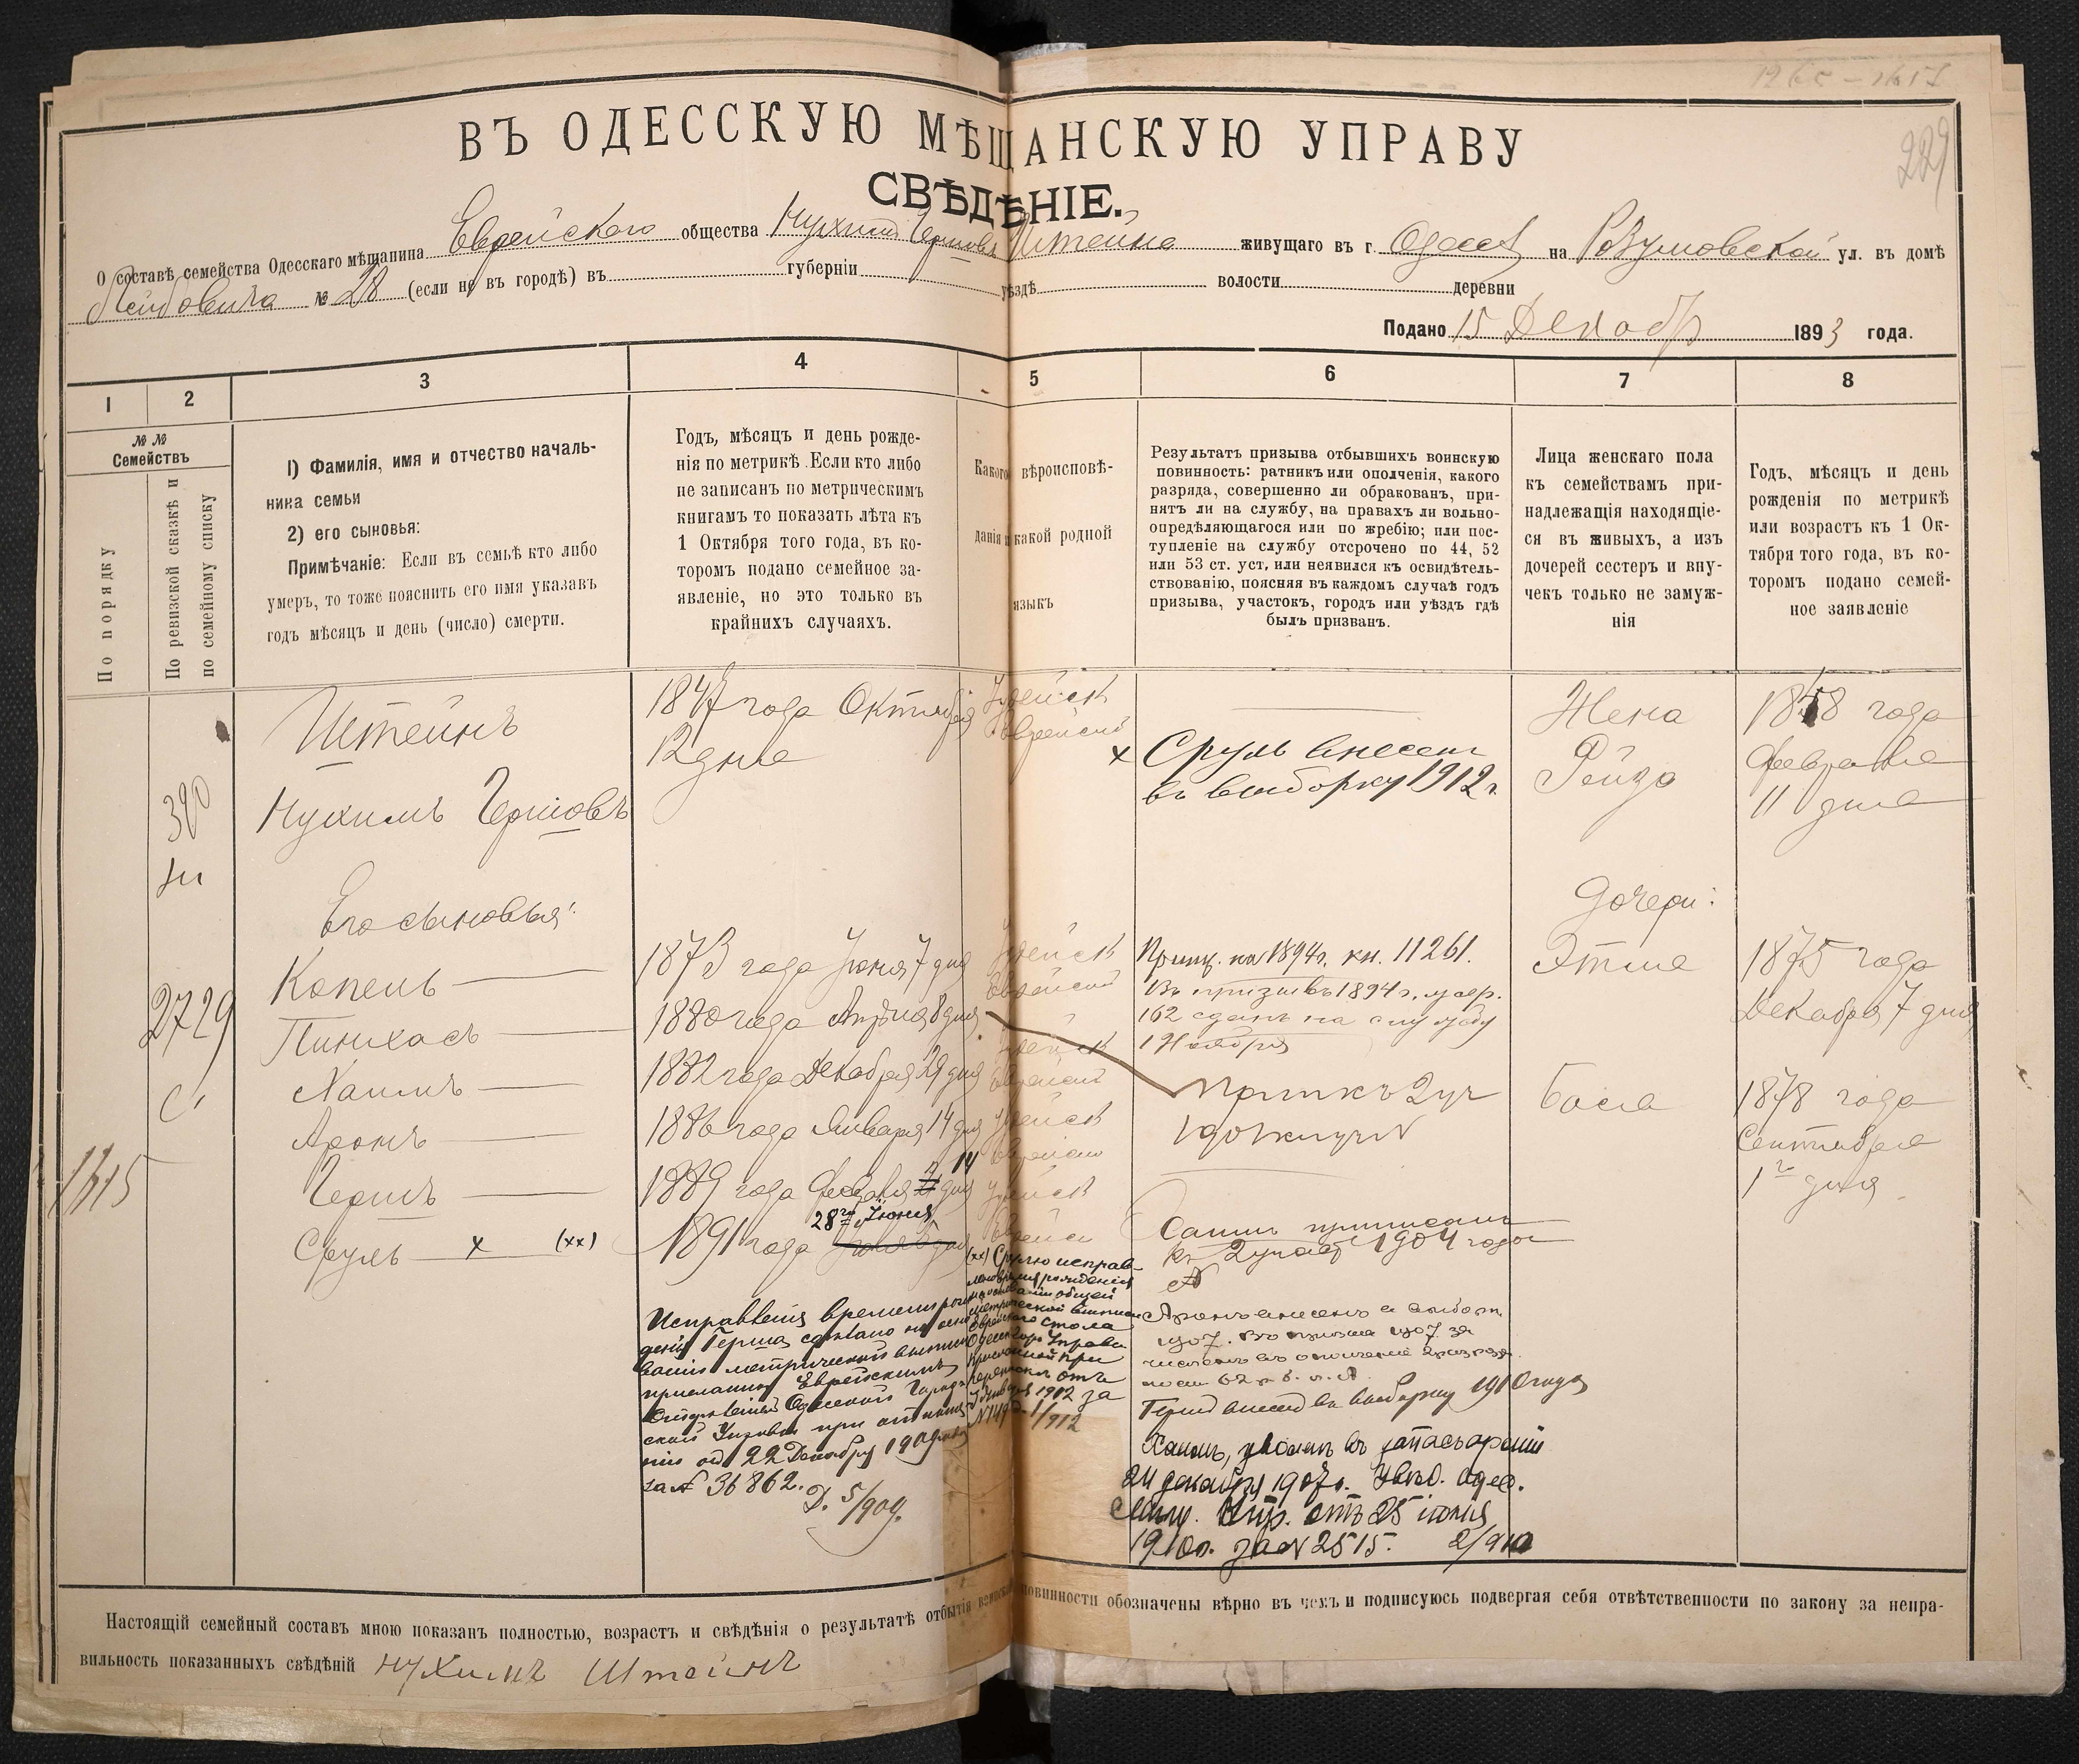 229
ВЪ ОДЕССКУЮ МѢЩАНСКУЮ УПРАВУ
СВѢДѢНІЕ.
О составѣ семейства Одесскаго мѣщанина Еврейскаго общества Нухима Гершова Штейна живущаго въ г. Одессѣ на Розумовской ул. въ домѣ
Лейбовича № 28 (если не въ городѣ) въ губерніи уѣздѣ волости деревни
Подано 15 Декабр 1893 года.
1 2 3 4 5 6 7 8
№ № Семействъ
По порядку
По ревизской сказкѣ и
по семейному списку
1) Фамилія, имя и отчество началь-
ника семьи
2) его сыновья:
Примѣчаніе: Если въ семьѣ кто либо
умеръ, то тоже пояснить его имя указавъ
годъ мѣсяцъ и день (число) смерти.
Годъ, мѣсяцъ и день рожде-
нія по метрикѣ. Если кто либо
не записанъ по метрическимъ
книгамъ то показать лѣта къ
1 Октября того года, въ ко-
торомъ подано семейное за-
явленіе, но это только въ
крайнихъ случаяхъ.
Какого вѣроисповѣ-
данія и какой родной
языкъ
Результатъ призыва отбывшихъ воинскую
повинность: ратникъ или ополченія, какого
разряда, совершенно ли обракованъ, при-
нятъ ли на службу, на правахъ ли вольно-
опредѣляющагося или по жребію; или пос-
тупленіе на службу отсрочено по 44, 52
или 53 ст. уст. или неявился къ освидѣтель-
ствованію, поясняя въ каждомъ случаѣ годъ
призыва, участокъ, городъ или уѣздъ гдѣ
былъ призванъ.
Лица женскаго пола
къ семействамъ при-
надлежащія находящіе-
ся въ живыхъ, а изъ
дочерей сестеръ и вну-
чекъ только не замуж-
нія
Годъ, мѣсяцъ и день
рожденія по метрикѣ
или возрастъ къ 1 Ок-
тября того года, въ ко-
торомъ подано семей-
ное заявленіе
390
2729
1615
Штейнъ
Нухимъ Гершовъ
Его сыновья:
Копель
Пинхасъ
Хаимъ
Аронъ
Гершъ
Сруль x (xx)
1847 года Октября
12 дня
1873 года Іюня 7 дня
1880 года Апрѣля 8 дня
1882 года Декабря 29 дня
1886 года Января 14 дня
14
1889 года Февраля дня
28го Іюня
1891 года
Исправленія времени рож
денія Герша сдѣлано на осно
ваніи метрической выписи
присланной Еврейскимъ
Отдѣленіемъ Одесской Город
ской Управы при отноше
ніи от 22 Декабря 1909 года
за № 36862.
Д. 5/909.
Іудейск
Еврейскій
Іудейск
Еврейскій
Іудейск
Еврейскій
Іудейск
Еврейскій
Іудейск
Еврейск
(xx) Срулю исправ-
лено время рожденія
на основаніи общей
метрической выписи
Еврейскаго стола
Одесск. Гор. Управы
отъ
Января 1912 за
1/912
x Сруль внесенъ
въ выборку 1912 г.
Припис. на 1894 г. кн. 11261.
Въ призывъ 1894 г. жер.
162 сданъ на службу
1 Ноября
къ 2 уч
Хаимъ приписанъ
къ 2 участ 1904 года
№
Аронъ внесенъ в выборк
1907. Въ призыв 1907 за
численъ въ ополченіе 2 разряда
Гершъ внесенъ въ выборку 1910 года
Хаимъ, уволенъ въ запасъ арміи
24 декабря 1907 г. Увѣд. одес.
отъ 25 іюня
1910 г. за № 2515. 2/910
Жена
Рейза
Дочери:
Этля
Бася
1858 года
Февраля
11 дня
1875 года
Декабря 7 дня
1878 года
Сентября
1го дня
Настоящій семейный составъ мною показанъ полностью, возрастъ и свѣдѣнія о результатѣ отбытія воинской повинности обозначены вѣрно въ чемъ и подписуюсь подвергая себя отвѣтственности по закону за непра-
вильность показанныхъ свѣдѣній Нухимъ Штейнъ